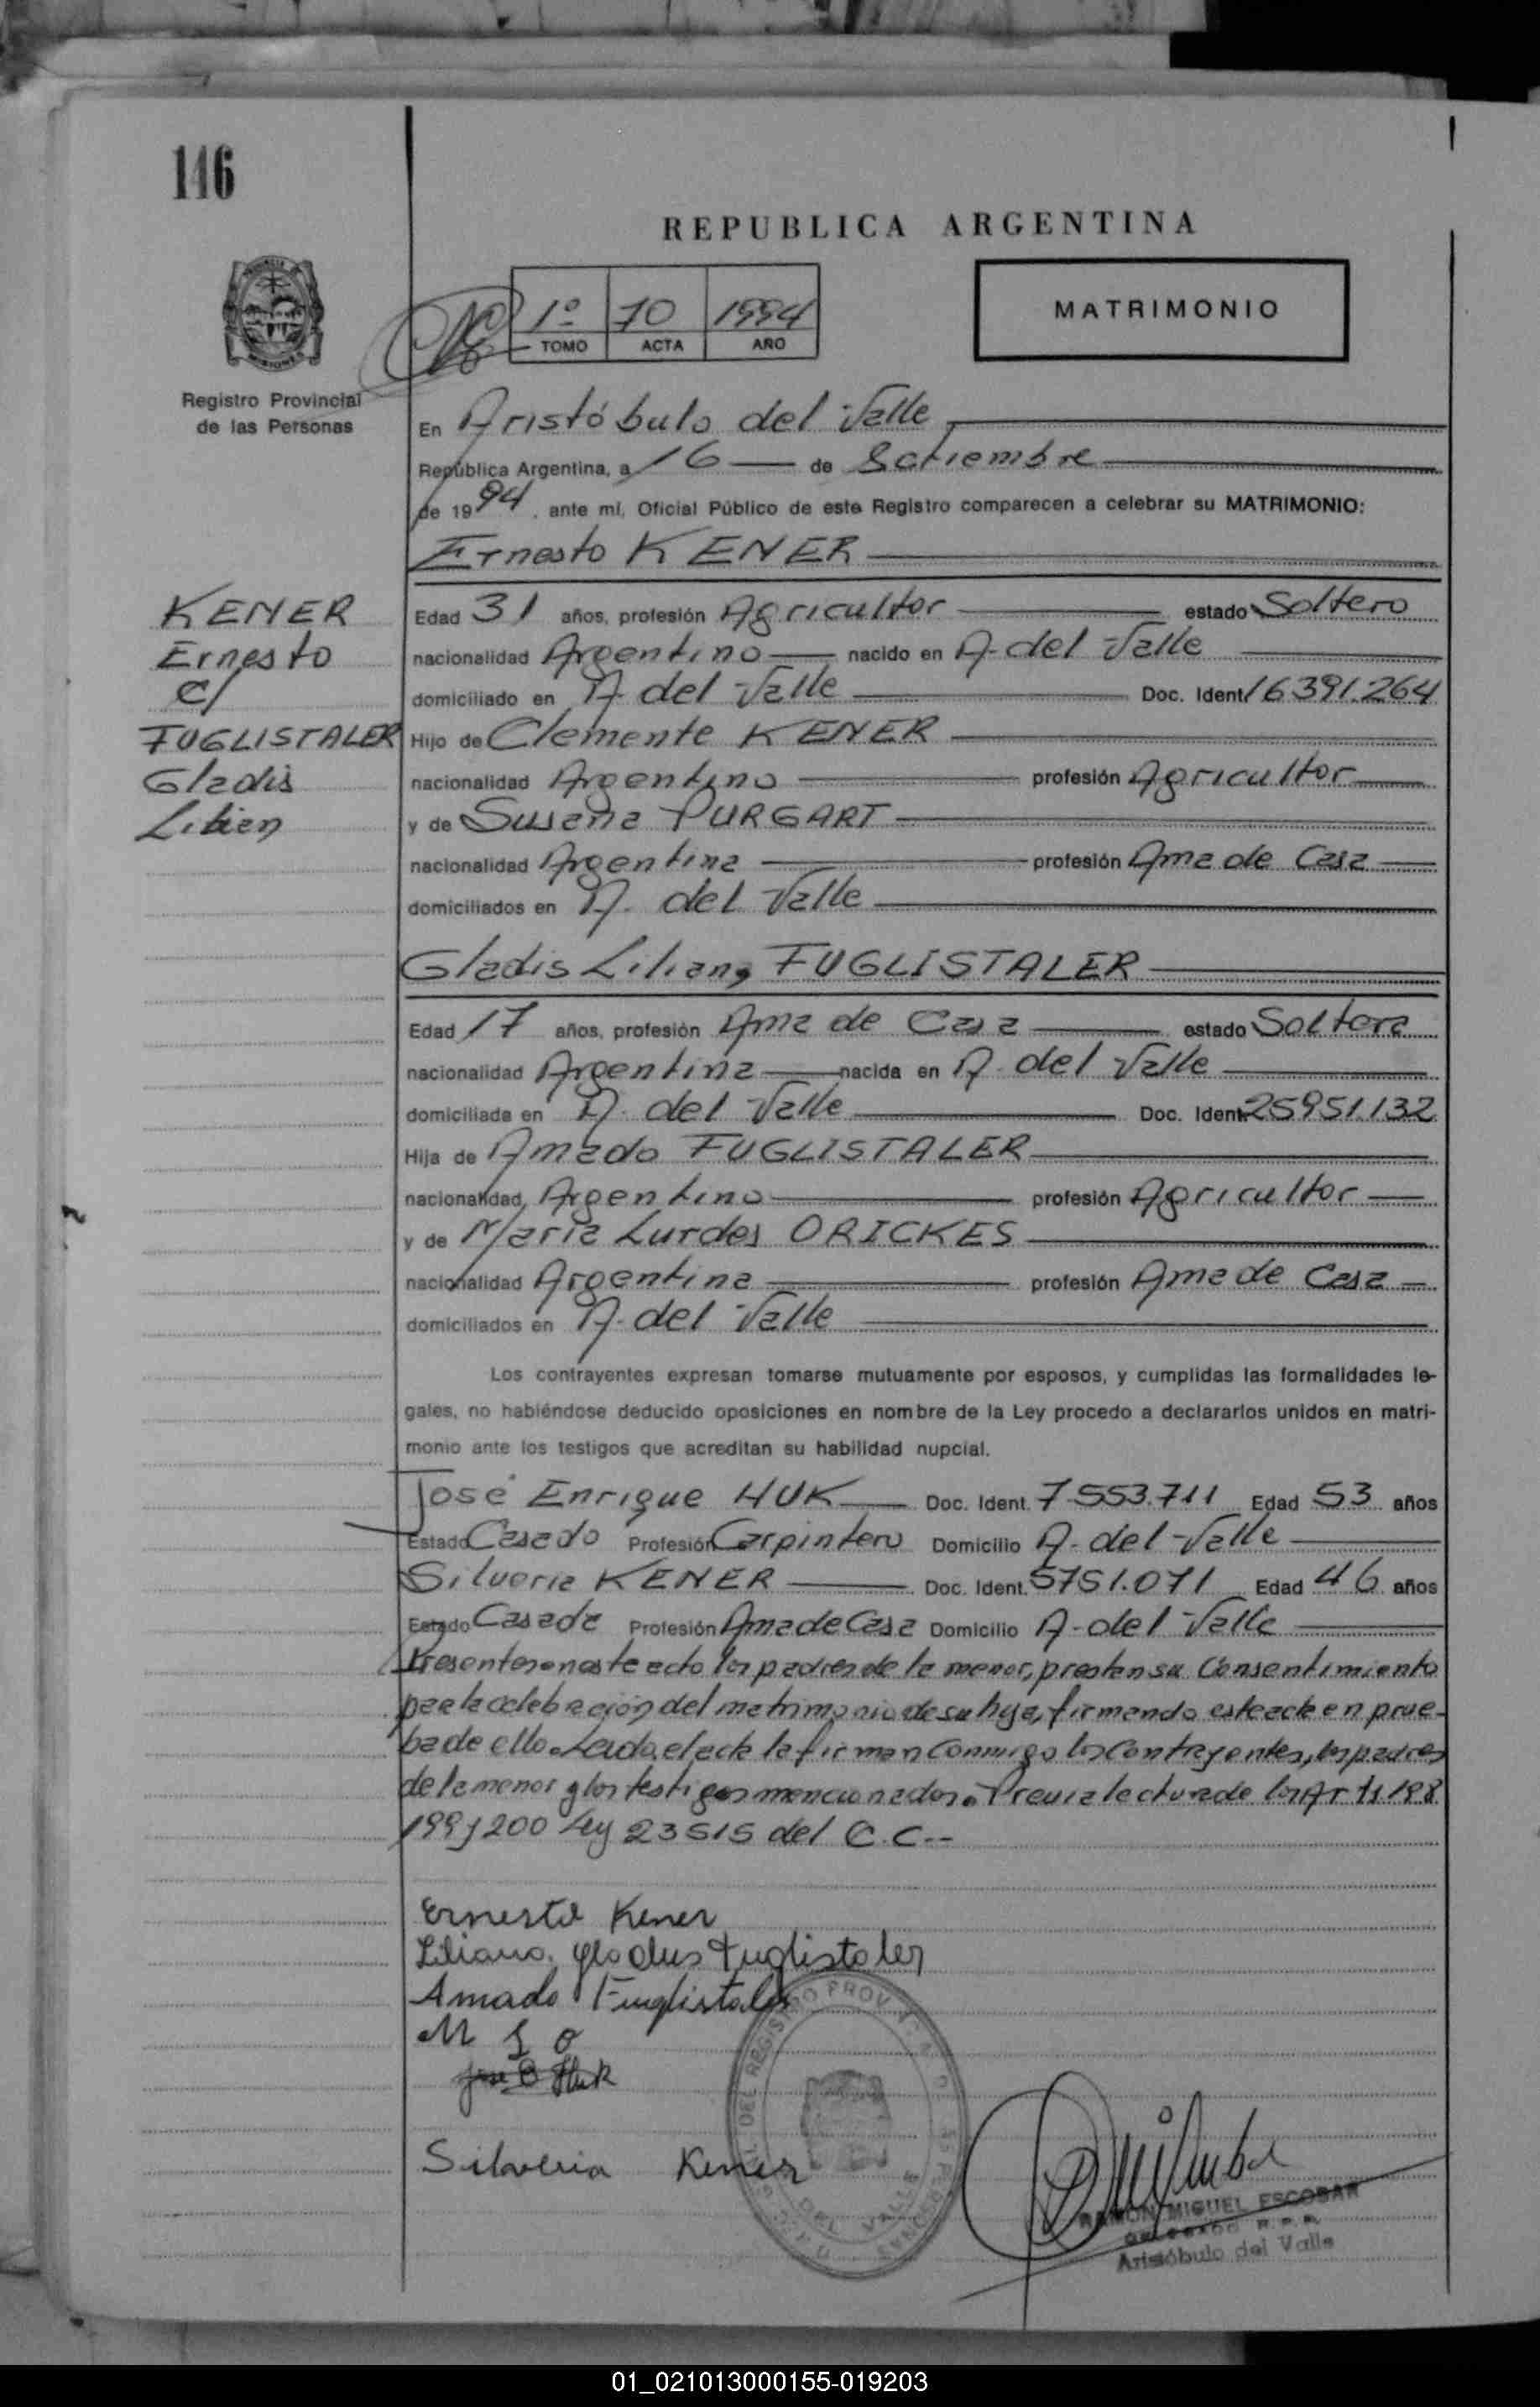 116
REPUBLICA ARGENTINA
1º 70 1994
TOMO ACTA AÑO
MATRIMONIO
Registro Provincial
de las Personas
En Aristóbulo del Valle
República Argentina, a 16 de Setiembre
de 1994, ante mí, Oficial Público de este Registro comparecen a celebrar su MATRIMONIO:
Ernesto KENER
KENER
Ernesto
C/
FUGLISTALER
Gladis
Lilian
Edad 31 años, profesión Agricultor estado Soltero
nacionalidad Argentino nacido en A. del Valle
domiciliado en A. del Valle Doc. Ident. 16391.264
Hijo de Clemente KENER
nacionalidad Argentino profesión Agricultor
y de Susana PURGART
nacionalidad Argentina profesión Ama de Casa
domiciliados en A. del Valle
Gladis Liliana FUGLISTALER
Edad 17 años, profesión Ama de Casa estado Soltera
nacionalidad Argentina nacida en A. del Valle
domiciliada en A. del Valle Doc. Ident. 25951.132
Hija de Amado FUGLISTALER
nacionalidad Argentino profesión Agricultor
y de Maria Lurdes ORICKES
nacionalidad Argentina profesión Ama de Casa
domiciliados en A. del Valle
Los contrayentes expresan tomarse mutuamente por esposos, y cumplidas las formalidades le-
gales, no habiéndose deducido oposiciones en nombre de la Ley procedo a declararlos unidos en matri-
monio ante los testigos que acreditan su habilidad nupcial.
José Enrique HUK Doc. Ident. 7.553.711 Edad 53 años
Estado Casado Profesión Carpintero Domicilio A. del Valle
Silveria KENER Doc. Ident. 5751.071 Edad 46 años
Estado Casada Profesión Ama de Casa Domicilio A. del Valle
Presentes en este acto los padres de la menor, prestan su Consentimiento
para la celebración del matrimonio de su hija, firmando este acta en prue-
ba de ello. Leida el acta la firman Conmigo los Contrayentes, los padres
de la menor y los testigos mencionados. Previa lectura de los Arts 198
199 y 200 Ley 23515 del C.C.--
Ernesto Kener
Liliana Gladus Fuglistaler
Amado Fuglistaler
M L O
Jose E Huk
Silveria Kener
DEL REGISTRO PROV
DEL VALLE
RAMON MIGUEL ESCOBAR
DELEGADO R.P.P.
Aristóbulo del Valle
01_021013000155-019203